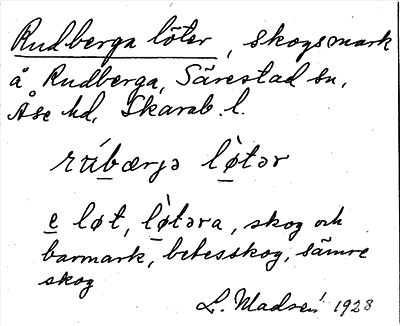 Rudberga löter, skogsmark
å Rudberga, Särestad sn,
Åse hd, Skarab. l.
rʉ́bærjə lø̀tər
e løt, lø̀təra, skog och
barmark, betesskog, sämre
skog
L. Madsén 1928